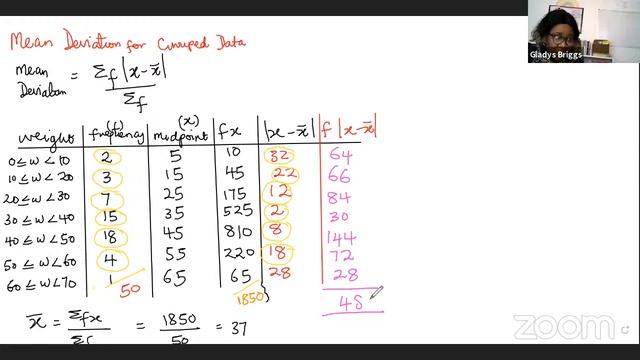 Mean Deviation for Grouped Data
Gladys Briggs
Mean Deviation = Σf|x-x̄| / Σf
weight | frequency (f) | midpoint (x) | fx | |x-x̄| | f|x-x̄|
0≤w<10 | 2 | 5 | 10 | 32 | 64
10≤w<20 | 3 | 15 | 45 | 22 | 66
20≤w<30 | 7 | 25 | 175 | 12 | 84
30≤w<40 | 15 | 35 | 525 | 2 | 30
40≤w<50 | 18 | 45 | 810 | 8 | 144
50≤w<60 | 4 | 55 | 220 | 18 | 72
60≤w<70 | 1 | 65 | 65 | 28 | 28
50 1850 48
x̄ = Σfx / Σf = 1850 / 50 = 37
zoom